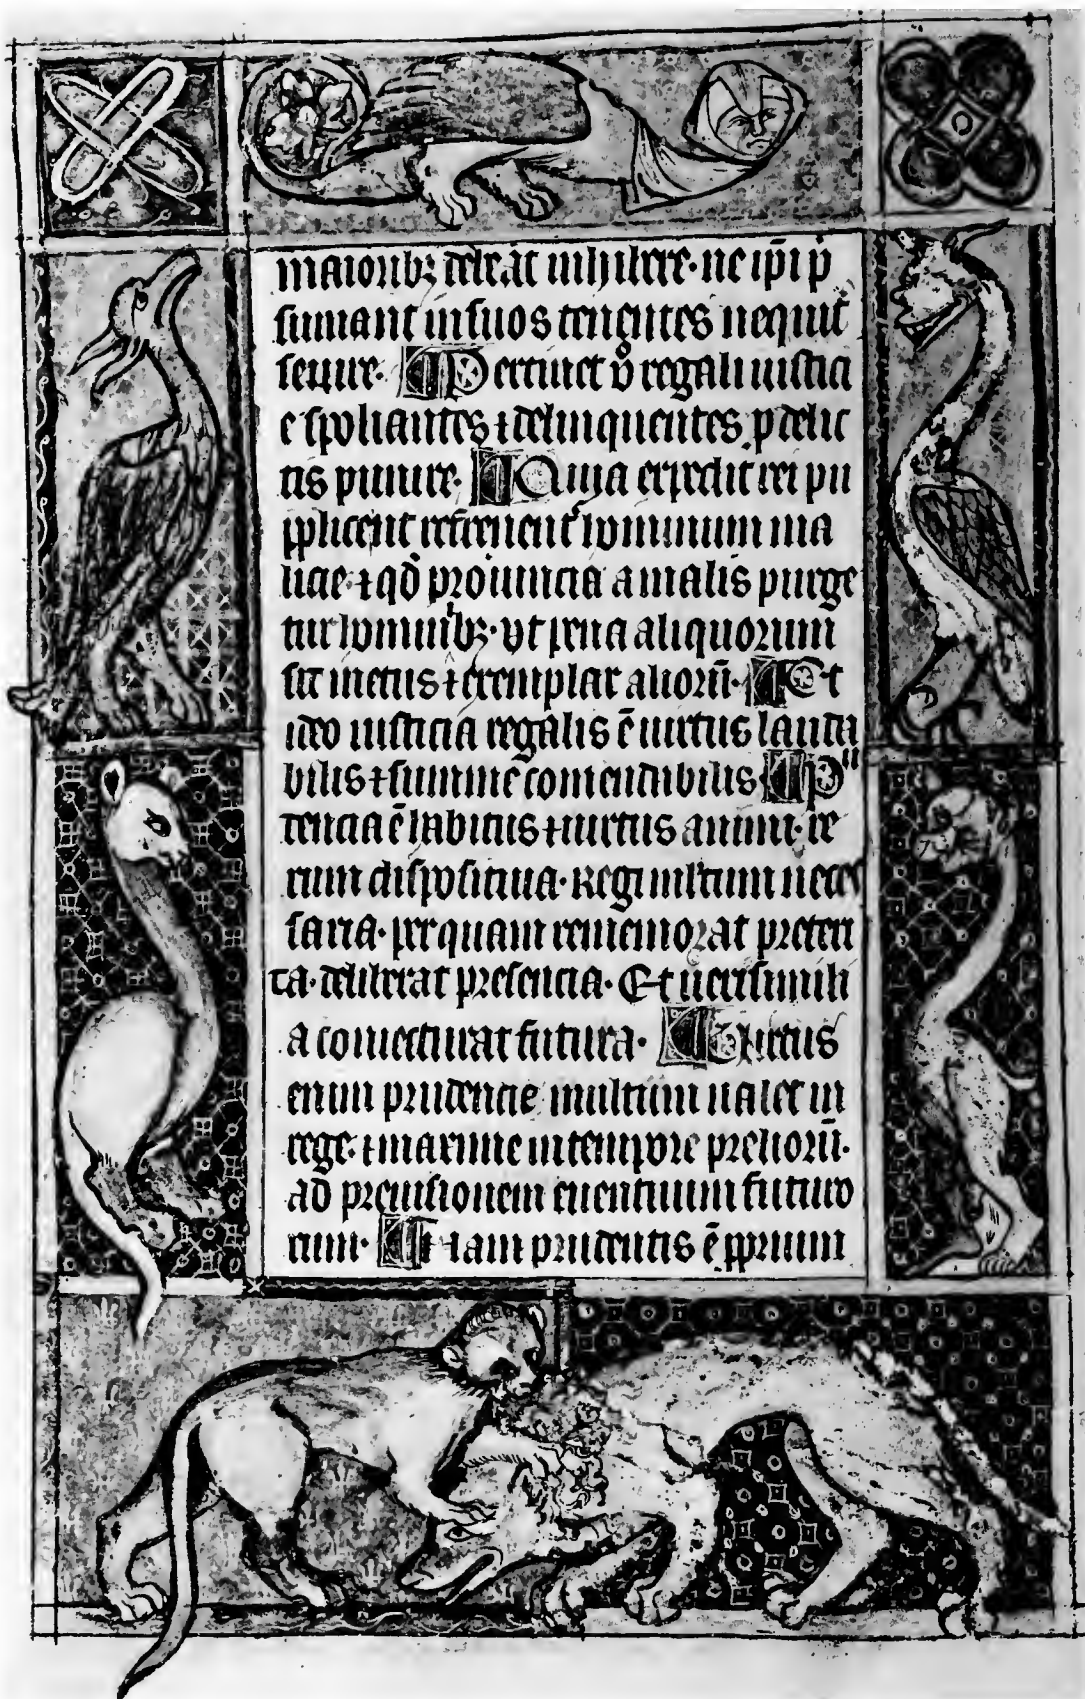 maioribꝫ debeat inhibere · ne ip̄i p̄
sumant in suos tenentes nequit̾
seuire · ¶ Pertinet v̊ regali iustici
e spoliantes ⁊ delinquentes p̱ delic
tis punire · ¶ Quia expedit rei pu
pplice ut refrenent᷑ hominum ma
licie · ⁊ qd̄ prouincia a malis purge
tur hominibꝫ · vt pena aliquorum
sit metus ⁊ exemplar aliorū · ¶ Et
ideo iusticia regalis ē uirtus lauda
bilis ⁊ summe comendabilis ¶ Pru
dencia ē habitus ⁊ uirtus animi · re
rum dispositiua · Regi multum neces
saria · per quam rememorat preteri
ta · deliberat presencia · Et uerisimili
a coniecturat futura · ¶ Uirtus
enim prudencie multum ualet in
rege · ⁊ maxime in tempore preliorū ·
ad preuisionem euentuum futuro
rum · ¶ Etiam prudentis ē ꝓprium